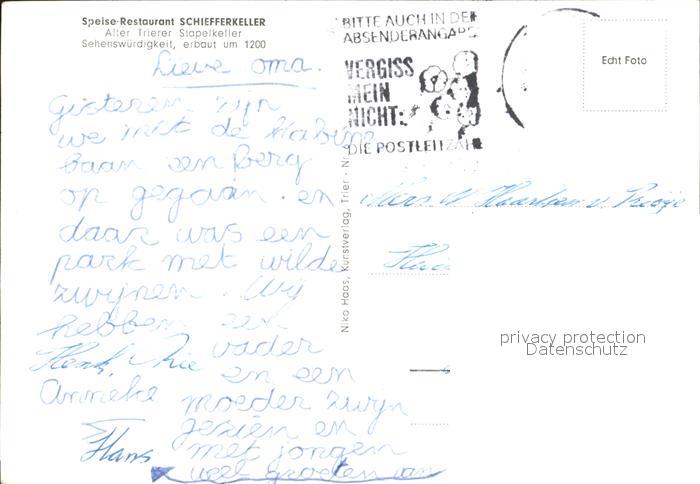 Speise-Restaurant SCHIEFFERKELLER
Alter Trierer Stapelkeller
Sehenswürdigkeit, erbaut um 1200
BITTE AUCH IN DER
ABSENDERANGABE
VERGISS
MEIN
NICHT:
DIE POSTLEITZAHL
Echt Foto
Lieve oma.
Gisteren zijn
we met de kabine
baan een berg
op gegaan. en
daar was een
park met wilde
zwijnen. Wij
hebben een
vader
en een
moeder zwijn
gezien en
met jongen
veel groeten van
Henk,
Anneke
Hans
Niko Haas, Kunstverlag, Trier - Nr
privacy protection
Datenschutz